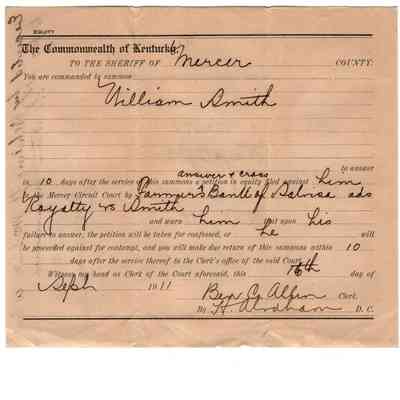 EQUITY
The Commonwealth of Kentucky,
TO THE SHERIFF OF Mercer COUNTY:
You are commanded to summon
William Smith
to answer
answer & cross
in 10 days after the service of this summons a petition in equity filed against him
in the Mercer Circuit Court by Farmers Bank of Salvisa ads
Royalty vs Smith
and warn him that upon his
failure to answer, the petition will be taken for confessed, or he will
be proceeded against for contempt, and you will make due return of this summons within 10
days after the service thereof to the Clerk's office of the said Court.
Witness my hand as Clerk of the aforesaid, this 16th day of
Sept 1911
Ben C. Allin Clerk.
By D. C.